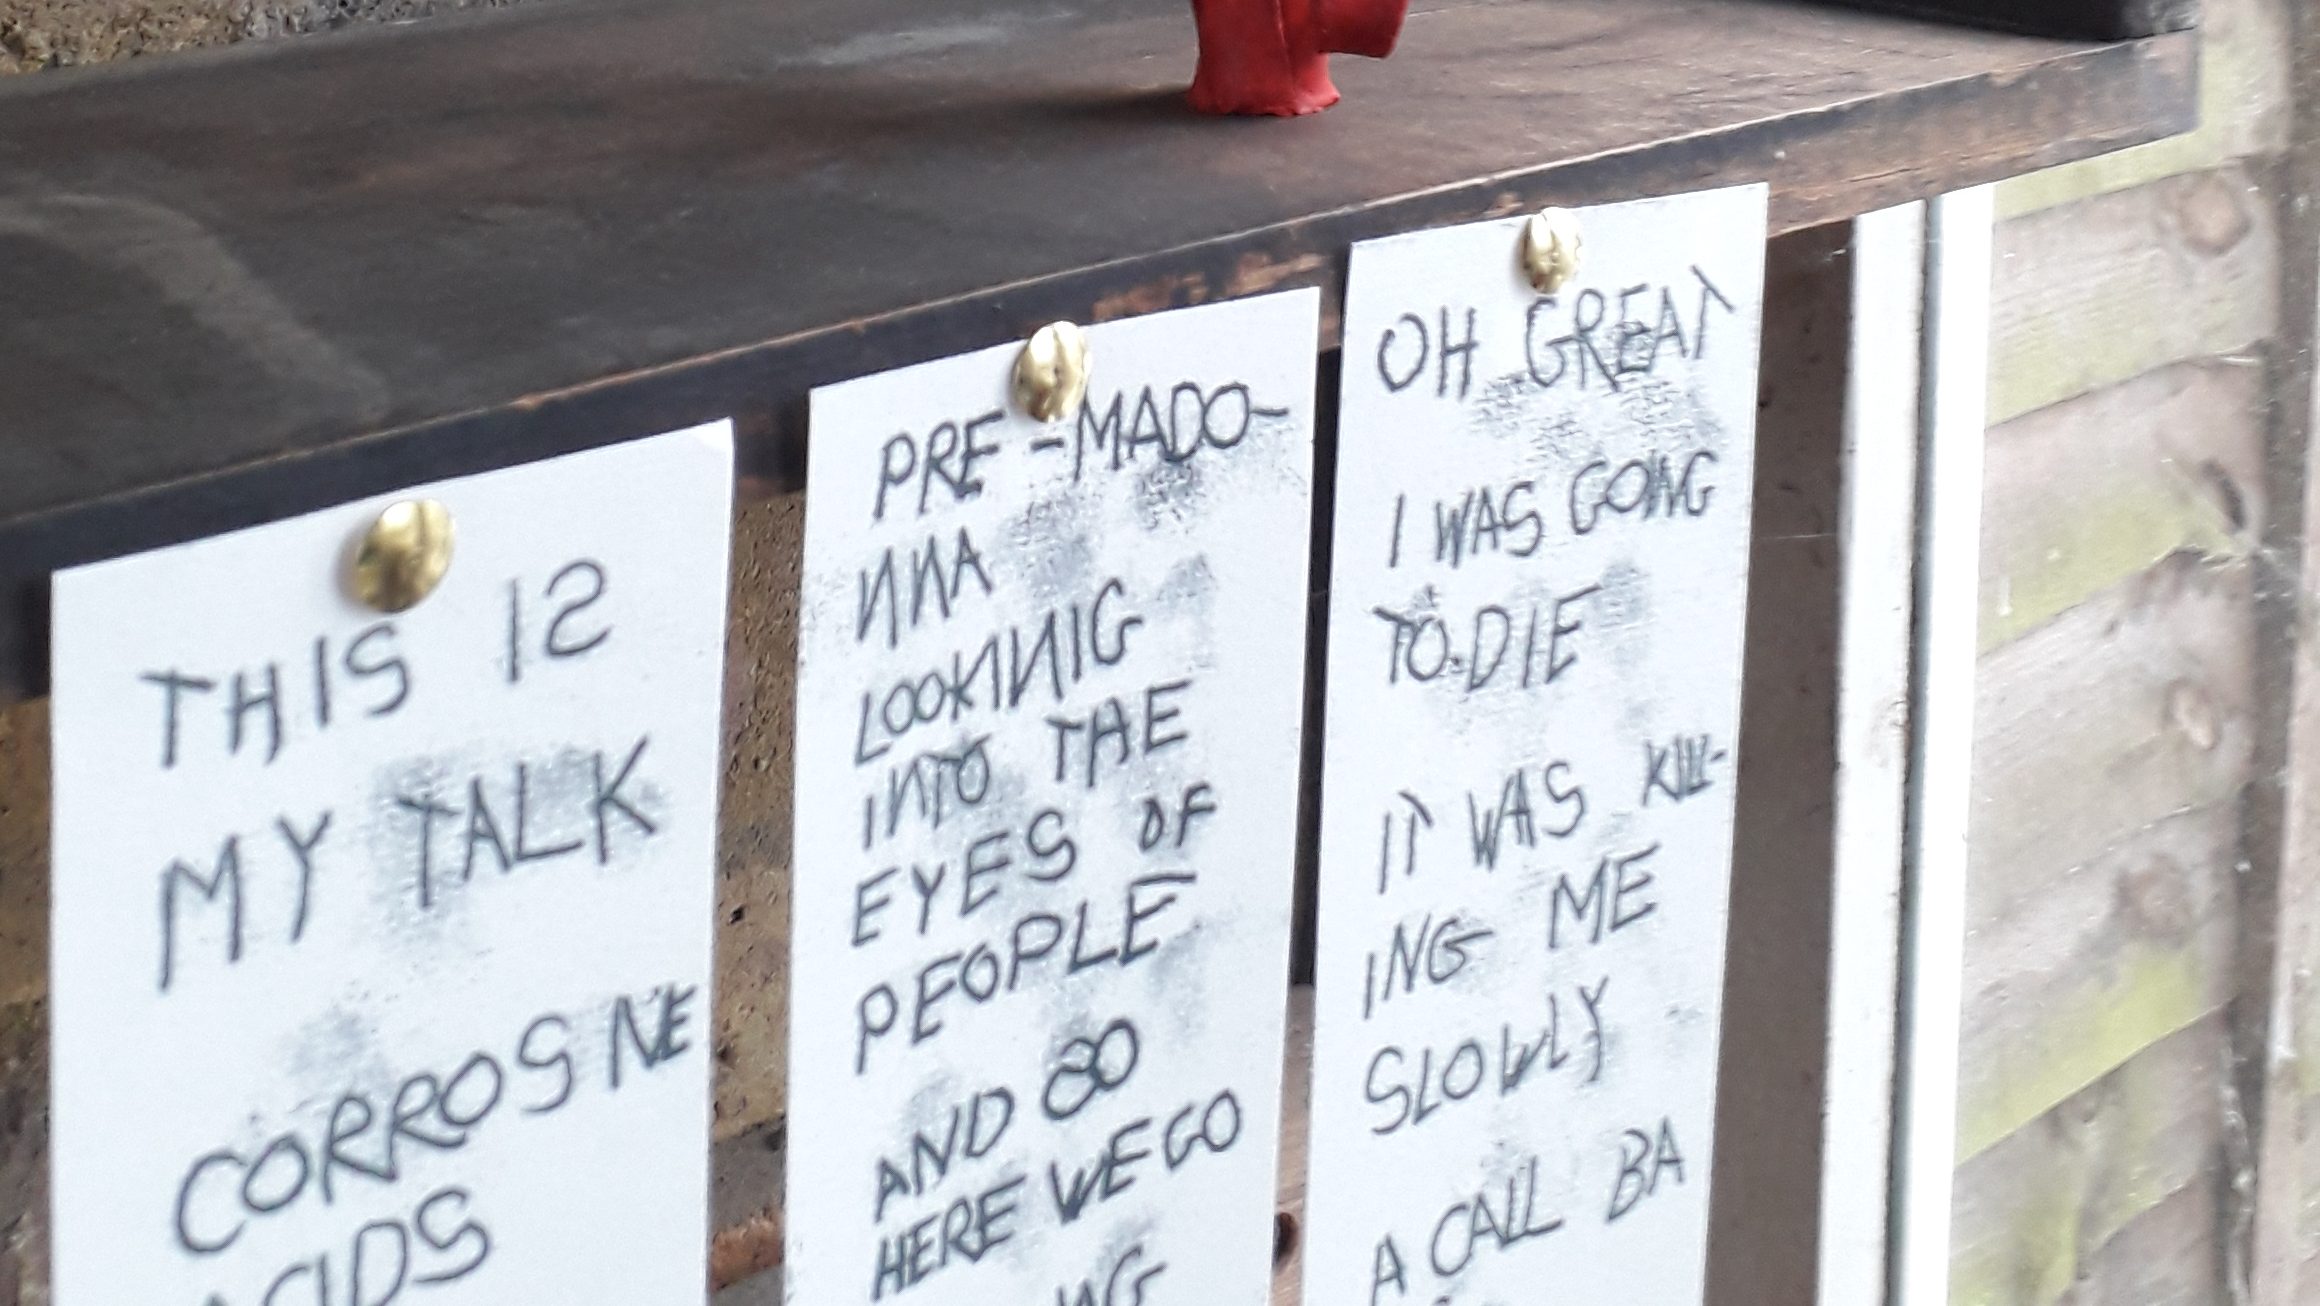 THIS IS
MY TALK
CORROSIVE
ACIDS
PRE-MADO-
NNA
LOOKNNIG
INTO THE
EYES OF
PEOPLE
AND SO
HERE WE GO
OH GREAT
I WAS GOING
TO DIE
IT WAS KILL-
ING ME
SLOWLY
A CALL BA